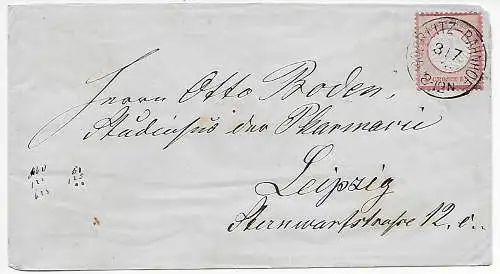 GÖRLITZ-BAHNHOF
3 17
8-10N
Herrn Otto Boden,
Studiosus der Pharmacie
Leipzig
Sternwartstrasse 12,